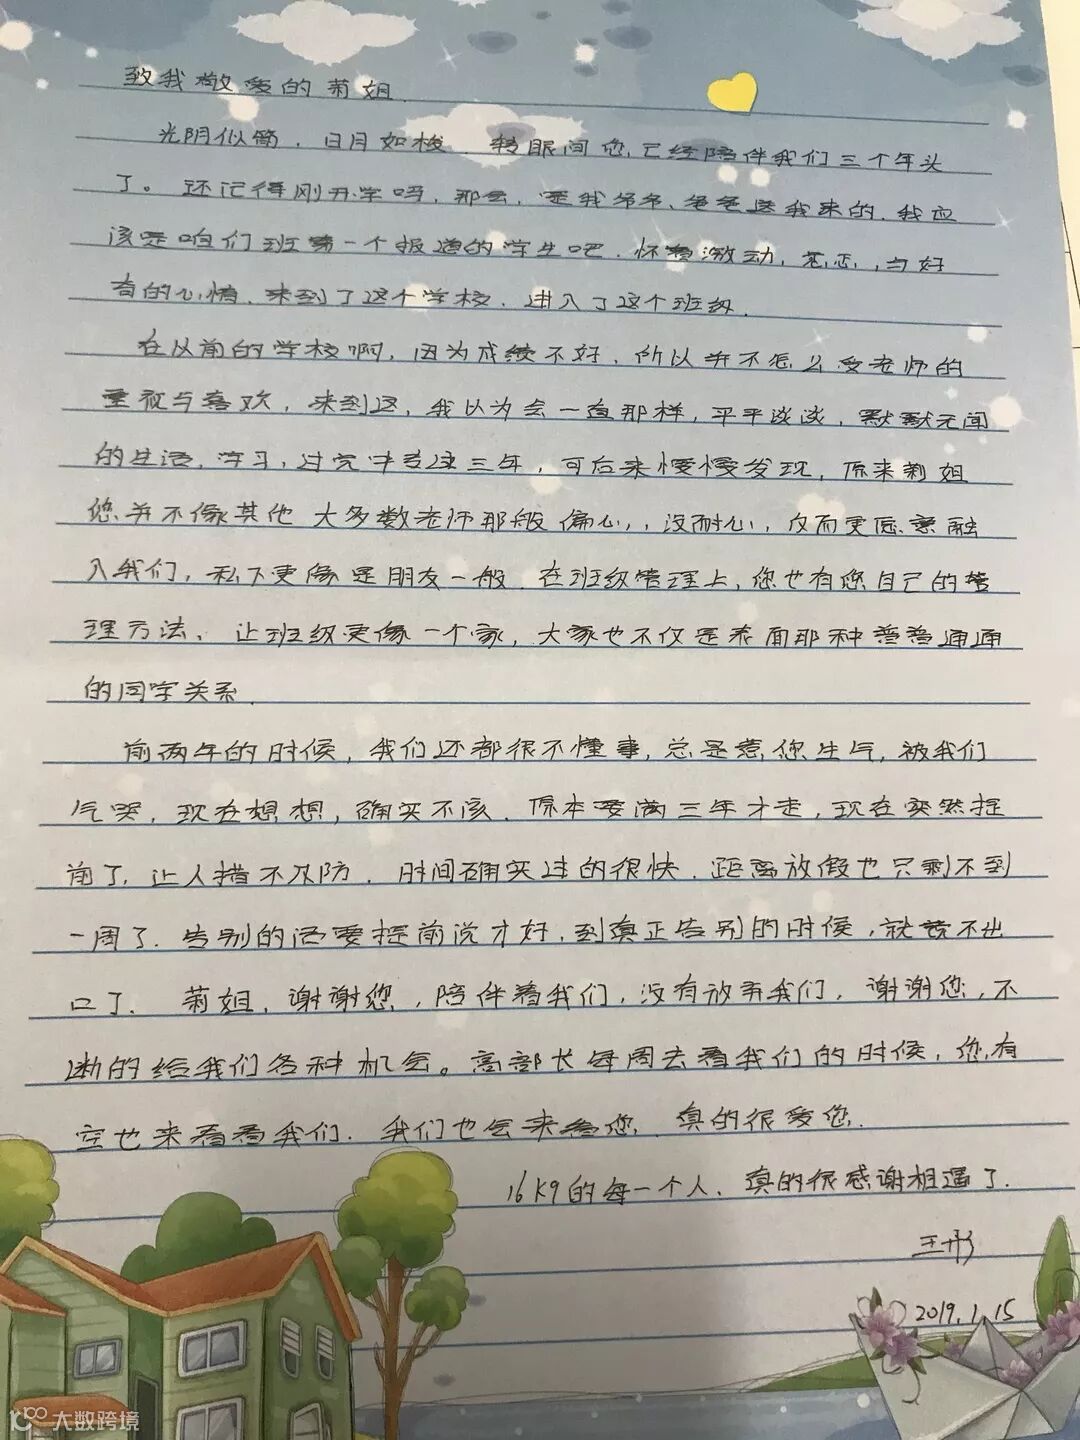 致我敬爱的莉姐
光阴似箭，日月如梭，转眼间您已经陪伴我们三个年头
了。还记得刚开学吗，那会，是我爷爷、爸爸送我来的，我应
该是咱们班第一个报道的学生吧，怀着激动，忐忑，与好
奇的心情，来到了这个学校，进入了这个班级.
在以前的学校啊，因为成绩不好，所以并不怎么受老师的
重视与喜欢，来到这，我以为会一直那样，平平淡淡，默默无闻
的生活，学习，过完中专这三年，可后来慢慢发现，原来莉姐
您并不像其他大多数老师那般偏心，没耐心，反而更愿意融
入我们，私下更像是朋友一般.在班级管理上，您也有您自己的管
理方法，让班级更像一个家，大家也不仅是表面那种普普通通
的同学关系.
前两年的时候，我们还都很不懂事，总是惹您生气，被我们
气哭，现在想想，确实不该.原本要满三年才走，现在突然提
前了，让人措不及防.时间确实过的很快，距离放假也只剩不到
一周了.告别的话要提前说才好，到真正告别的时候，就说不出
口了.莉姐，谢谢您，陪伴着我们，没有放弃我们，谢谢您，不
断的给我们各种机会。高部长每周去看我们的时候，您有
空也来看看我们.我们也会来看您.真的很爱您.
16K9的每一个人，真的很感谢相遇了.
王彤
2019.1.15
大数跨境